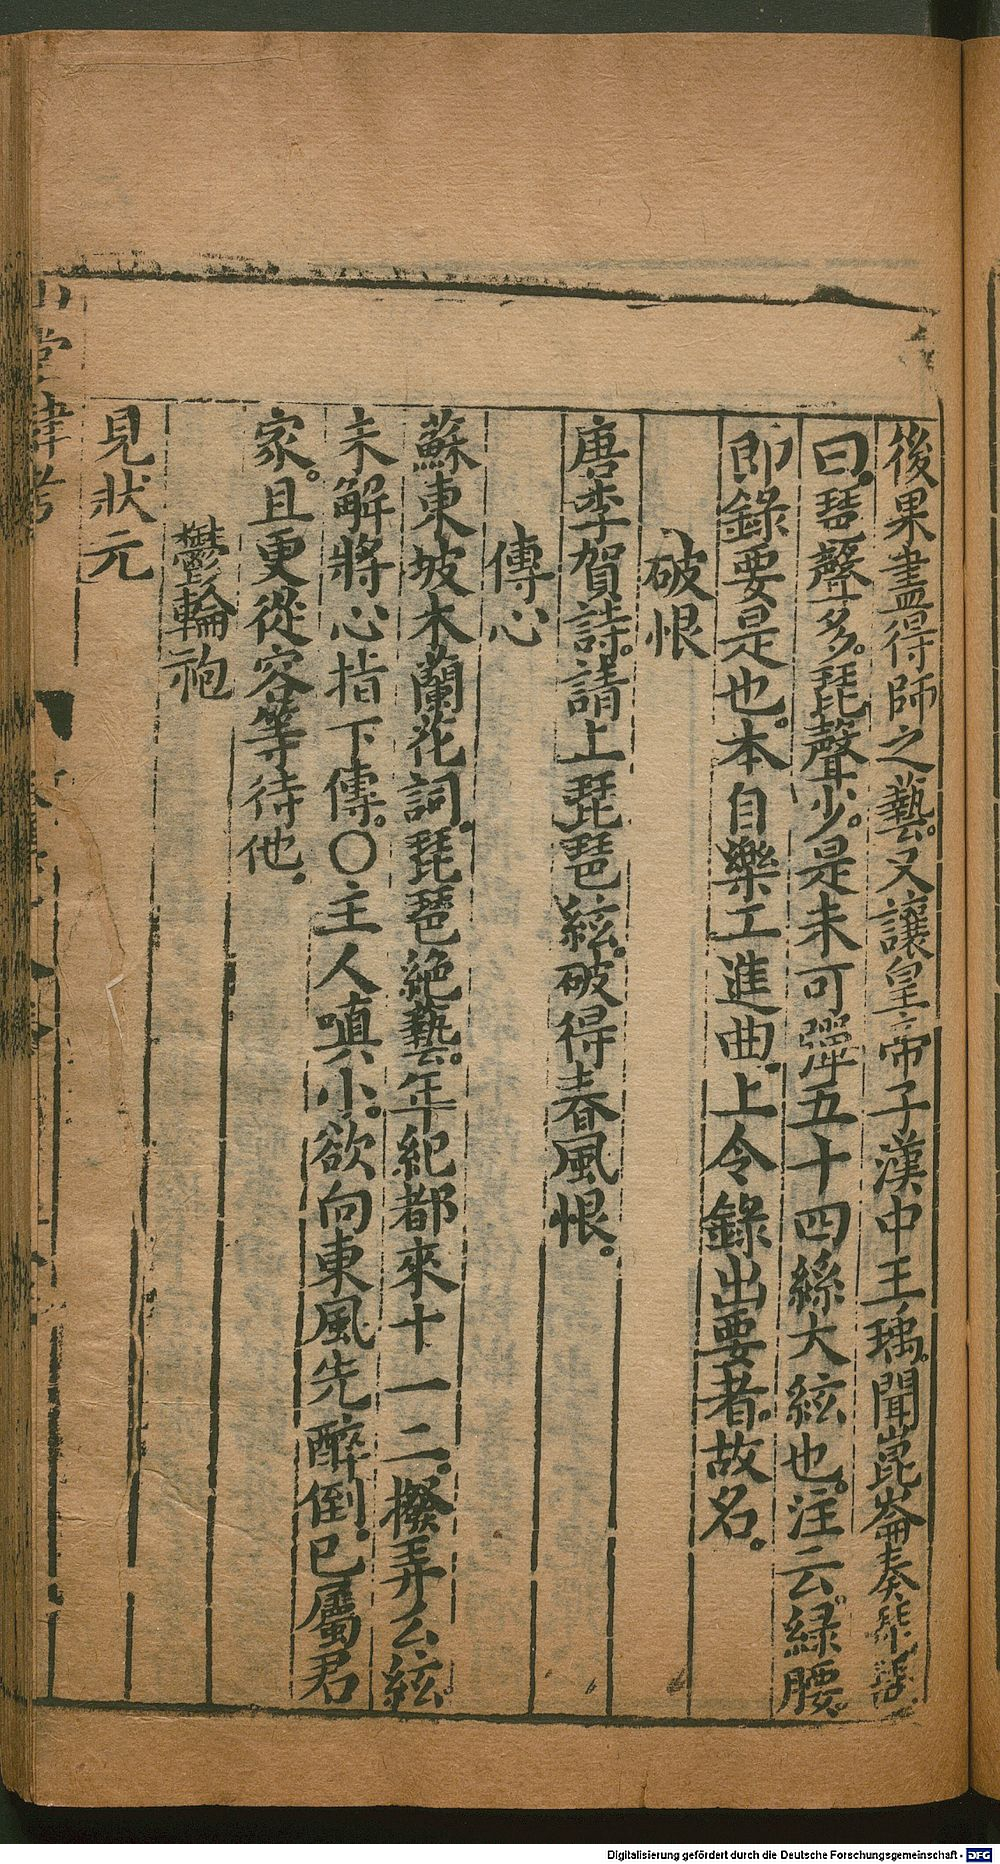 後果盡得師之藝。又讓皇帝子漢中王瑀。聞崑崙奏琵琶。
曰。琵聲多。琶聲少。是未可彈五十四絲大絃也。注云。綠腰。
即錄要是也。本自樂工進曲。上令錄出要者。故名。
破恨
唐李賀詩。請上琵琶絃。破得春風恨。
傳心
蘇東坡木蘭花詞。琵琶絕藝。年紀都來十一二。撥弄么絃。
未解將心指下傳。〇主人嗔小。欲向東風先醉倒。已屬君
家。且更從容等待他。
鬱輪袍
見狀元
山堂肆考
Digitalisierung gefördert durch die Deutsche Forschungsgemeinschaft - DFG